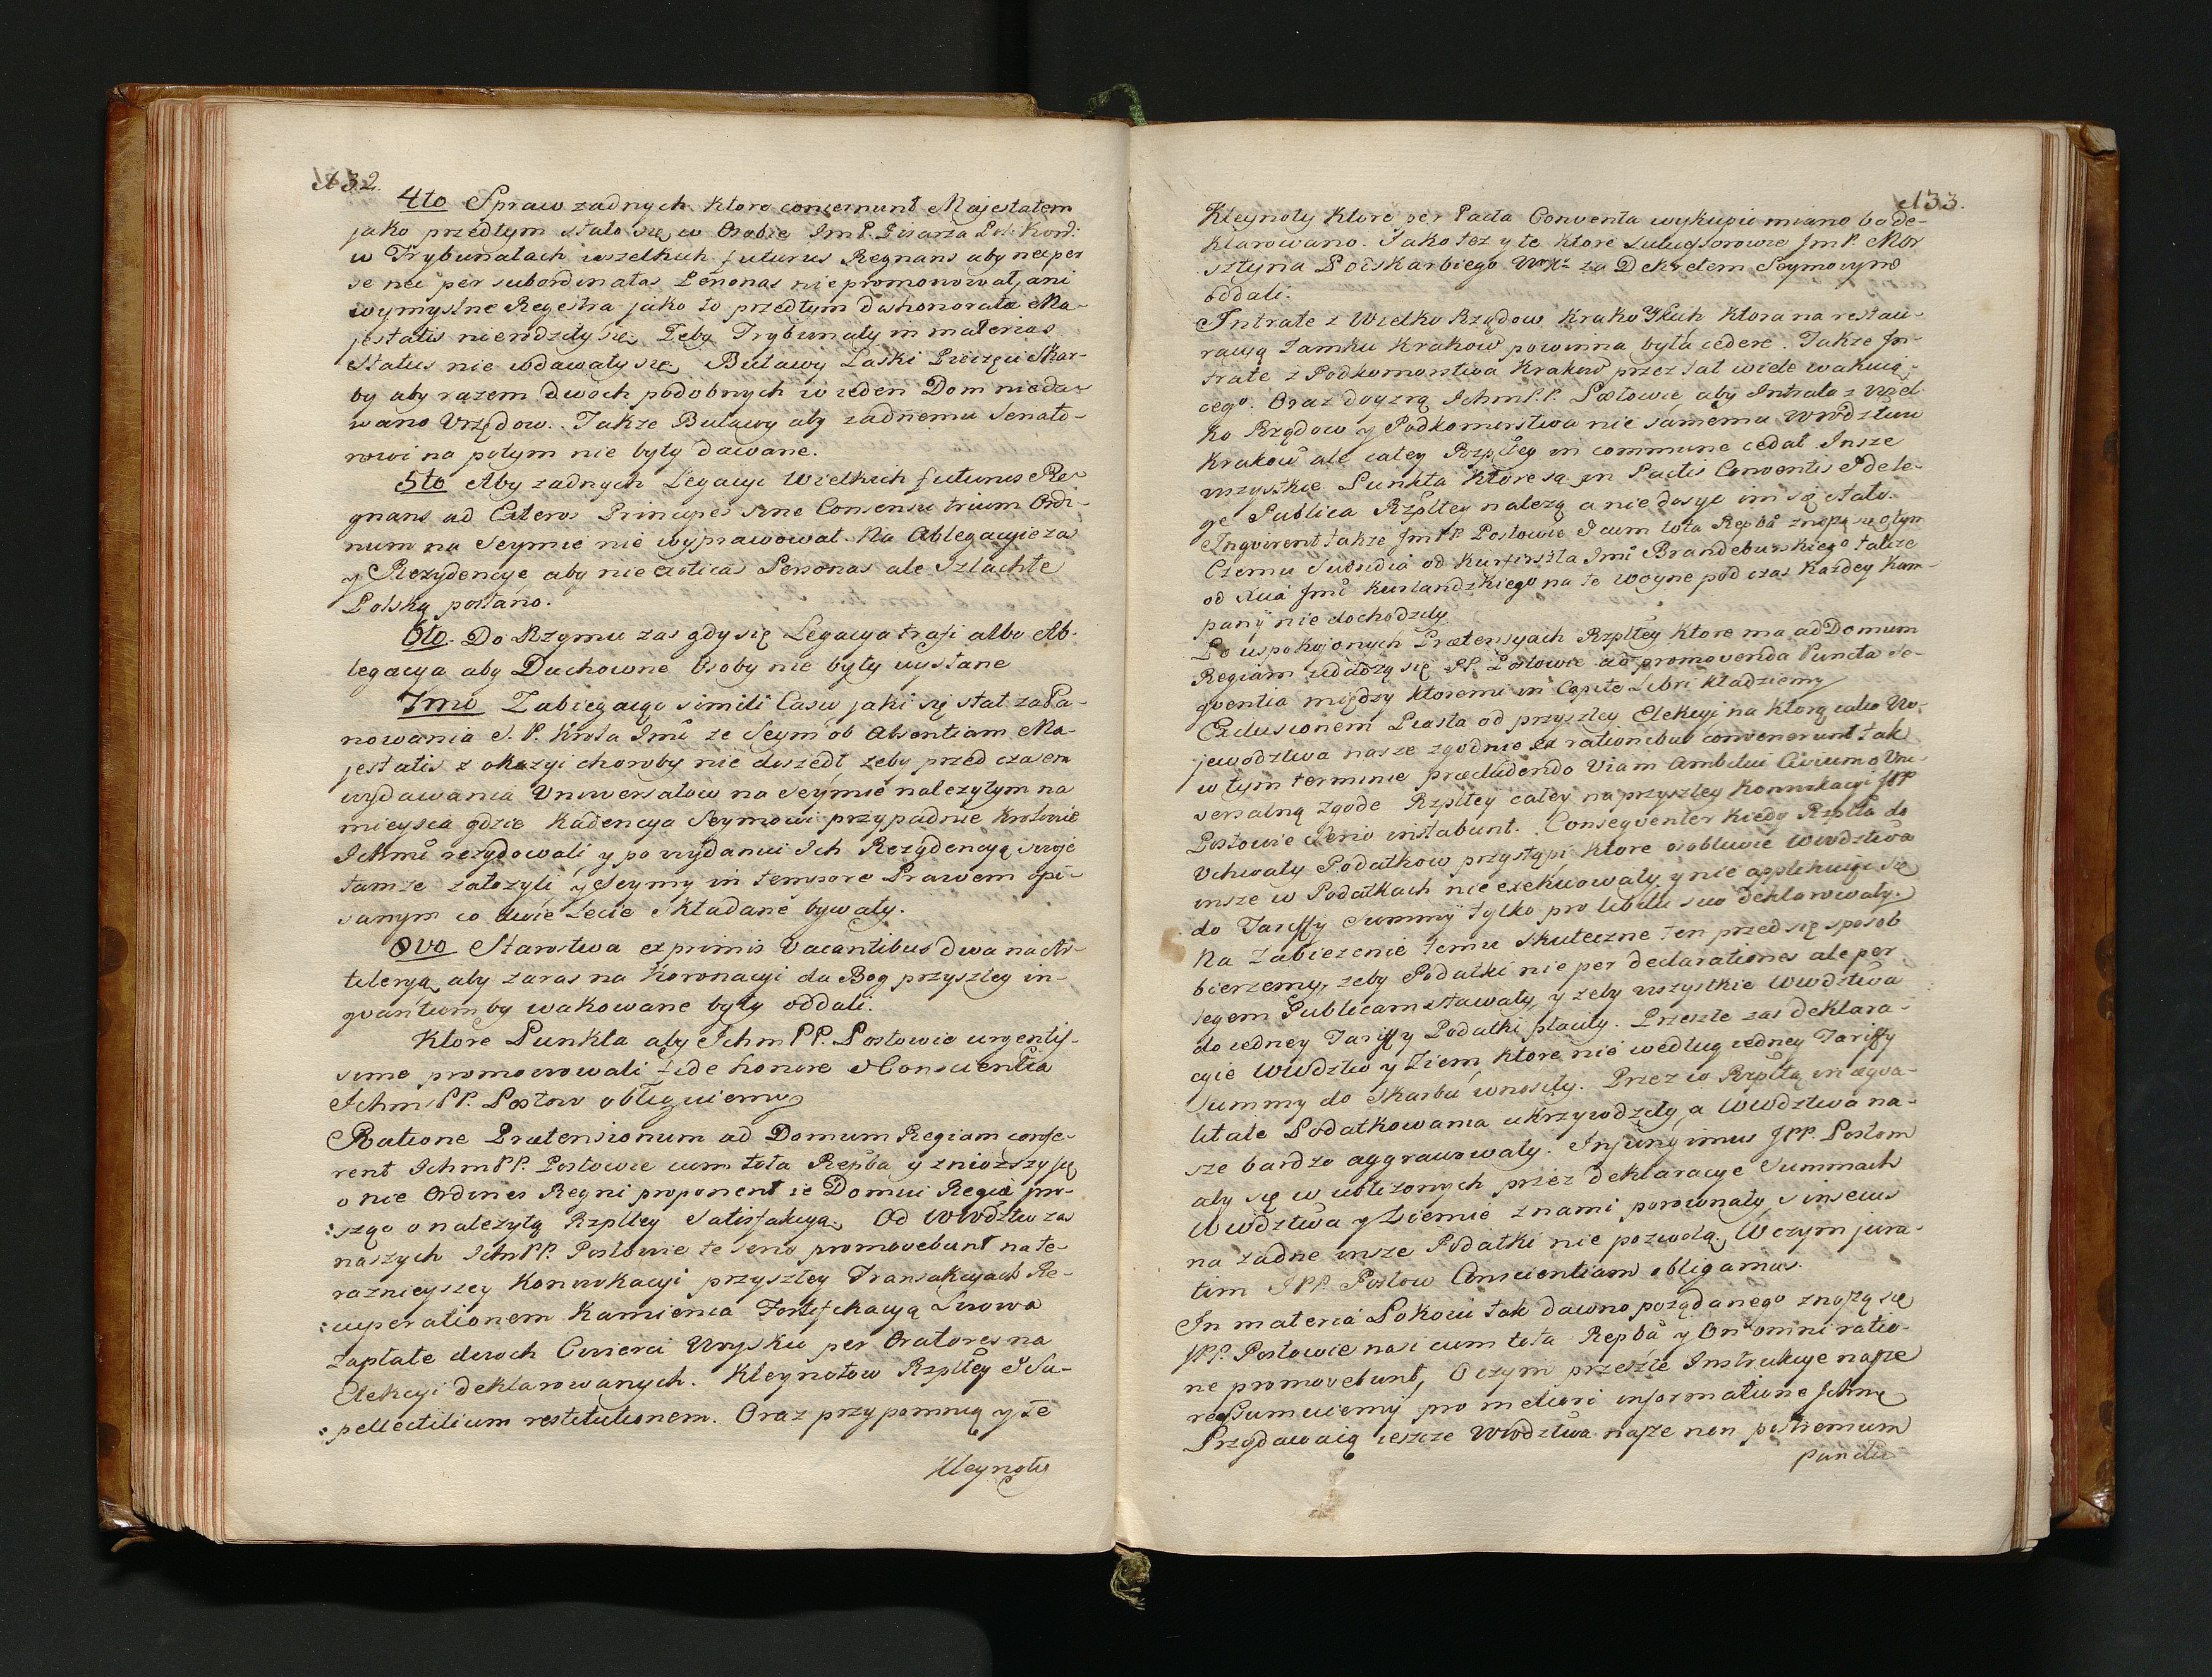 132.
4to Spraw zadnych ktore concernunt Majestatem
jako przedtym stało się w Osobie ImP. Pisarza Pol: Kord:
w Trybunałach wszelkich futurus Regnans aby nec per
se nec per subordinatas Personas nie promonował, ani
wymyslne Regestra jako to przedtym dishonorata Ma-
jestatis nierodziły się, Zeby Trybunały in materias
Status nie wdawały się, Buławy Laski Pieczęci Skar-
by aby razem dwoch podobnych w ieden Dom nieda-
wano Urzędow. Takze Buławy aby zadnemu Senato-
rowi na potym nie były dawane.
5to Aby zadnych Legacyi Wielkich futurus Re-
gnans ad Exteros Principes sine Consensu trium Ordi-
num na Seymie nie wyprawował. Na Ablegacyie zas
y Rezydencye aby nie exoticas Personas ale Szlachte
Polską posłano.
6to. Do Rzymu zas gdy się Legacya trafi albo Ab-
legacya aby Duchowne Osoby nie były wysłane
7mo Zabiegaiąc simili Casui jaki się stał za Pa-
nowania S. P. Krola Imci ze Seym ob Absentiam Ma-
jestatis z okazyi choroby nie doszedł, zeby przed czasem
wydawania Uniwersałow na Seymie nalezytym na
mieysca gdzie Kadencya Seymowi przypadnie Krolowie
Ichmć rezydowali y po wydaniu Ich Rezydencyą swoje
tamze załozyli y Seymy in tempore Prawem opi-
sanym co dwie Lecie składane bywały.
8vo Starostwa ex primis Vacantibus dwa na Ar-
tyleryą aby zaras na Koronacyi da Bog przyszłey in-
quantum by wakowane były oddali.
Ktore Punkta aby Ichm PP. Posłowie urgentis-
sime promowowali fide honore et Conscientia
Ichm PP. Posłow obliguiemy
Ratione Prætensionum ad Domum Regiam confe-
rent Ichm PP. Posłowie cum tota Repba y znioszszy się
o nie Ordines Regni proponent ie Domui Regiæ pro-
:sząc o nalezytą Rzpltey Satisfakcyą. Od Wwdztw zas
naszych Ichm PP. Posłowie te serio promovebunt na te-
raznieyszey Konwokacyi przyszłey Transakcyach Re-
:cuperationem Kamienca Fortyfikacyą Lwowa
Zapłate dwoch Cwierci Woysku per Oratores na
Elekcyi deklarowanych. Kleynotow Rzpltey et Su-
:pellectilium restitutionem. Oraz przypomną y te
Kleynoty
133.
Kleynoty ktore per Pacta Conventa wykupic miano bo de-
klarowano. Jako tez y te ktore Sukcessorowie Jm P. Mor
sztyna Podskarbiego W. K. za Dekretem Seymowym
oddali.
Intrate z Wielko Rządow Krakowskich ktora na restau-
racyą Zamku Krakow powinna była cedere. Takze In-
trate z Podkomorstwa Krakow przez tat wiele wakuią-
cego. Oraz doyzrą Ichm P.P. Posłowie aby Intrata z Wiel
ko Rządow y Podkomorstwa nie samemu Wwdztwu
Krakow ale całey Rzpltey in commune cedat Insze
wszystkie Punkta ktore są in Pactis Conventis et de le-
ge Publica Rzpltey nalezą a nie dosyc im się stało.
Inqvirent takze Jm PP. Posłowie et cum tota Repba zniozą się o tym
Czemu Subsidia od Kurfirszta Jmci Brandeburskiego takze
od Xcia Jmci Kurlandzkiego na te woyne pod czas kazdey Kam-
panij nie dochodziły
Po uspokojonych Prætensyach Rzpltey ktore ma ad Domum
Regiam udadzą się PP. Posłowie ad promovenda Puncta se-
quentia między ktoremi in Capite Libri kładziemy
Exclusionem Piasta od przyszłey Elekcyi na ktorą całe Wo-
jewodztwa nasze zgodnie ex rationibus convenerunt tak
w tym terminie præcludendo Viam Ambitui Civium o Uni-
wersalną zgode Rzpltey całey na przyszłey Konwokacyi JPP
Posłowie serio instabunt. Conseqventer kiedy Rzplta do
Uchwały Podatkow przystąpi, ktore osobliwie Wwdztwa
insze w Podatkach nie exekwowały y nie applikuiąc się
do Taryffy Summy tylko pro libitu suo deklarowały.
Na Zabiezenie temu skuteczne ten przed się sposob
bierzemy, zeby Podatki nie per declarationes ale per
legem Publicam stawały, y zeby wszystkie Wwdztwa
do iedney Taryffy Podatki płaciły. Przeszłe zas deklara-
cyie Wwdztw y Ziem, ktore nie według iedney Taryffy
Summy do Skarbu wnosiły. Przez co Rzpltą in æqua-
litate Podatkowania ukrzywdziły, a Wwdztwa na-
sze bardzo aggrawowały. Injungimus JPP. Posłom
aby się w ublizonych przez deklaracye Summach
Wwdztwa y Ziemie z nami porownały, sin secus
na zadne insze Podatki nie pozwolą, W czym jura-
tim JPP. Posłow Conscientiam obligamus.
In materia Pokoiu tak dawno poządanego zniozą się
JPP. Posłowie nasi cum tota Repba y On omni ratio-
ne promovebunt, O czym przeszłe Instrukcye nasze
reassumuiemy pro meliori informatione Ichm
Przydawaią ieszcze Wwdztwa nasze non postremum
punctu